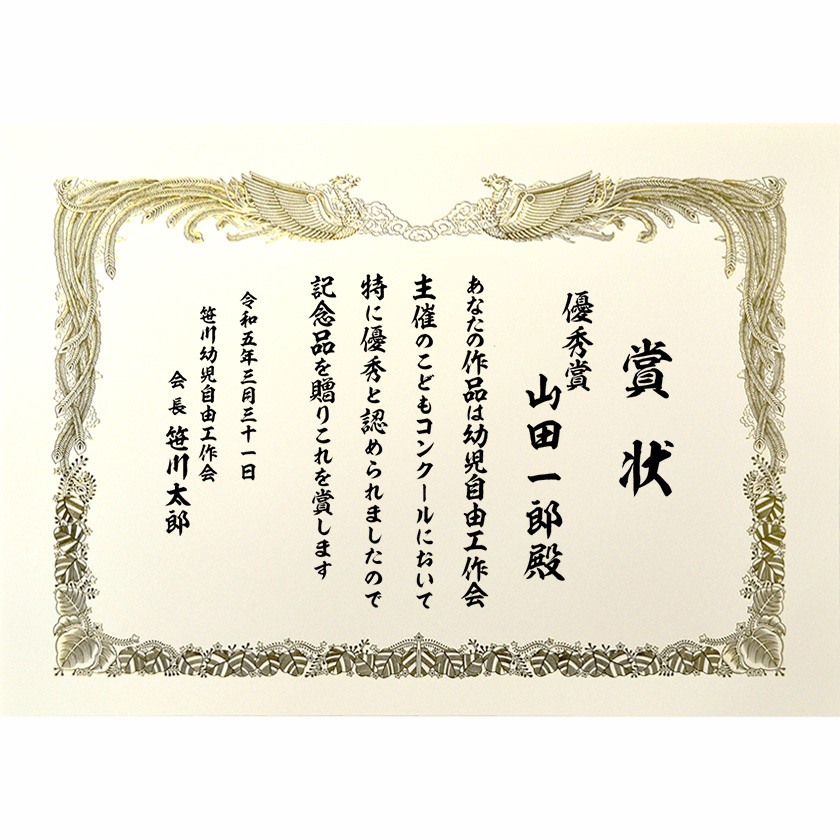 賞状
優秀賞
山田一郎殿
あなたの作品は幼児自由工作会
主催のこどもコンクールにおいて
特に優秀と認められましたので
記念品を贈りこれを賞します
令和五年三月三十一日
笹川幼児自由工作会
会長 笹川太郎